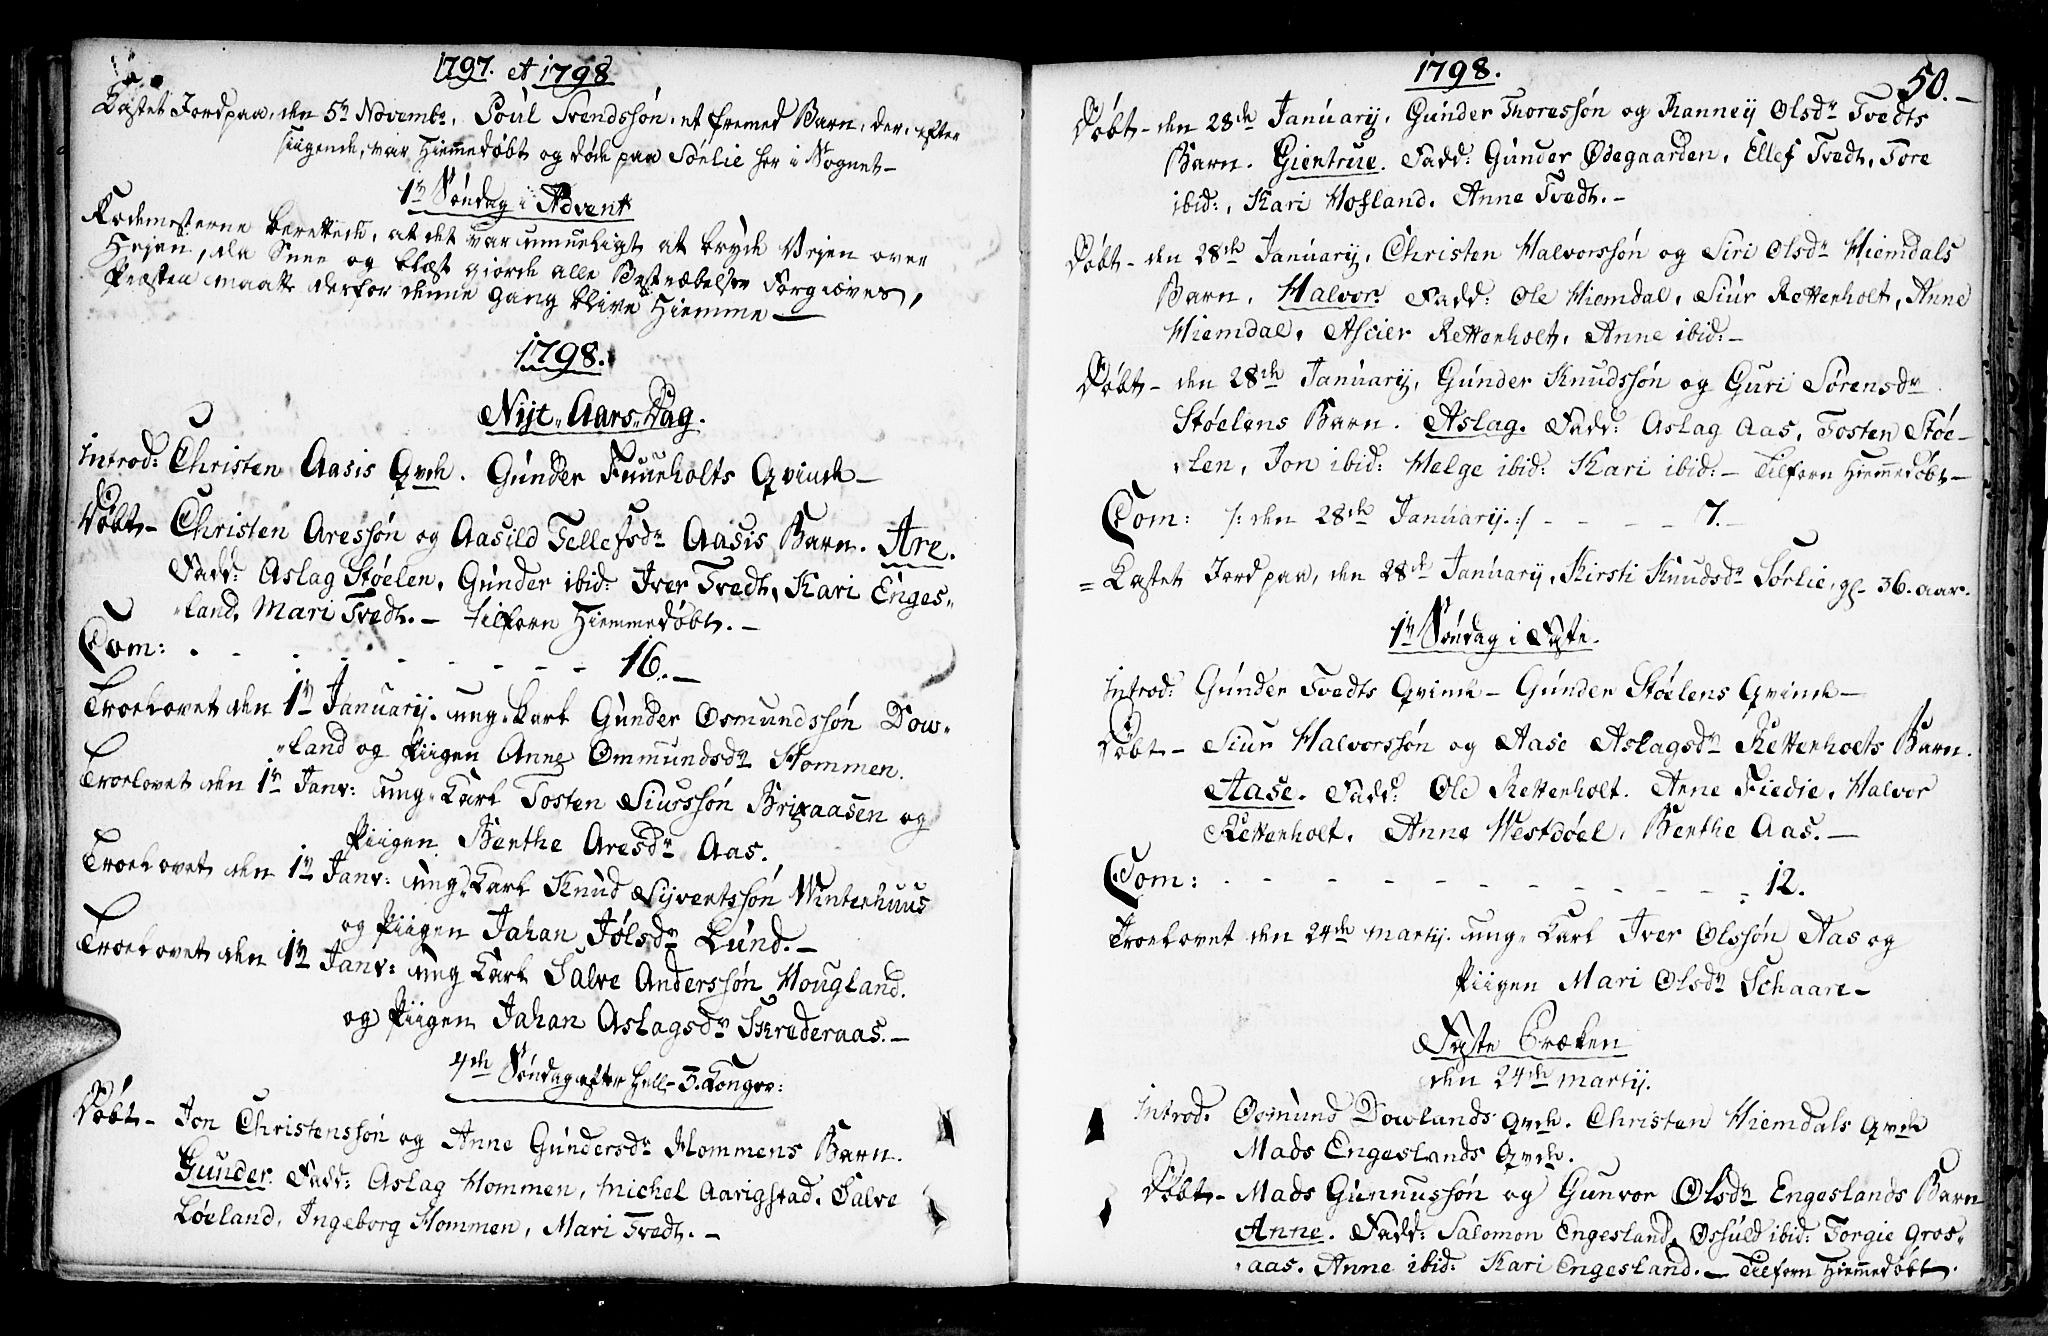 1797. et 1798
Kastet Jord paa, den 5te Novembr. Poúl Svendssón, et fremed Barn, der, efter
siigende, var Hiemmedøbt og døde paa Sórlie her i Sognet –
1te Søndag i Advent
Rodemesterne berettede, at det var umueligt at bryde Veyen over
Heyen, da Snee og blæst giorde alle Bestræbelser Forgiæves,
Præsten maatte derfor denne gang blive Hiemme –
1798.
Nyt-Aars-Dag.
Introd: Christen Aasis Qvde. Gúnder Fuureholts Qvinde –
Døbt – Christen Aressón og Aasild Tellefsdr Aasis Barn. Are.
Fadd: Aslag Støelen, Gúnder ibid: Iver Tvedt, Kari Enges-
land, Mari Tvedt. – tilforn Hiemmedøbt. –
Com: . - - - - - - - 16. –
Troelovet den 1te Januarij. ung-karl Gúnder Osmundssón Dow-
land og Piigen Anne Ommundsdr Hommen.
Troelovet den 1te Janv: ung-Karl Tosten Siurssón Brixaasen og
Piigen Berthe Aresdr Aas.
Troelovet den 1te Janv: ung-Karl Knud Syvertssón Winterhuus
og Piigen Jahan Jølsdr Lúnd. –
Troelovet den 1te Janv: ung Karl Salve Anderssón Hougland.
og Piigen Jahan Aslagsdr Skrederaas. –
4de Søndag efter Hell- 3. Konger:
Døbt – Jon Christenssón og Anne Gúndersdr Hommens Barn.
Gunder. Fadd: Aslag Hommen, Michel Aarigstad, Salve
Løeland, Ingeborg Hommen, Mari Tvedt. –
1798.
50. –
Døbt – den 28de Janúarij, Gúnder Thoressón og Ranneij Olsdr Tvedts
Barn. Gientrue. Fadd: Gúnder Ødegaarden, Ellef Tvedt, Tore
ibid:, Kari Hofland. Anne Tvedt. –
Døbt – den 28de Janúarij, Christen Halvorssón og Siri Olsdr Hiemdals
Barn, Halvor. Fadd: Ole Hiemdal, Siúr Rettenholt, Anne
Hiemdal, Ascier Rettenholt, Anne ibid: –
Døbt – den 28de Janúarij, Gúnder Knudssón og Guri Sørensdr
Støelens Barn. Aslag. Fadd: Aslag Aas, Tosten Støe-
len, Jon ibid: Helge ibid: Kari ibid: – Tilforn Hiemmedøbt –
Com: /: den 28de Janúarij. :/ - - - - 7. –
= Kastet Jord paa, den 28de Janúarij, Kirsti Knudsdr Sørlie, gl- 36. aar.
1te Søndag i Faste.
Introd: Gúnder Tvedts Qvinde – Gúnder Støelens Qvinde –
Døbt – Siur Halvorssón og Aase Aslagsdr Rettenholts Barn.
Aase. Fadd: Ole Rettenholt. Anne Fiedie, Halvor
Rettenholt, Anne Westdøel, Berthe Aas. –
Com: - - - - - - - - - - 12.
Troelovet den 24de Martij. ung-Karl Iver Olssón Aas og
Piigen Mari Olsdr Schaare –
Faste Præken
den 24de Martij.
Introd. Osmúnd Dowlands Qvde. Christen Hiemdals Qvde
Mads Engeslands Qvde.
Døbt – Mads Gunnussón og Gunvor Olsdr Engeslands Barn
Anne. Fadd: Salomon Engesland, Oshúld ibid: Torgie Gros-
aas. Anne ibid: Kari Engesland. – Tilforn Hiemmedøbt.